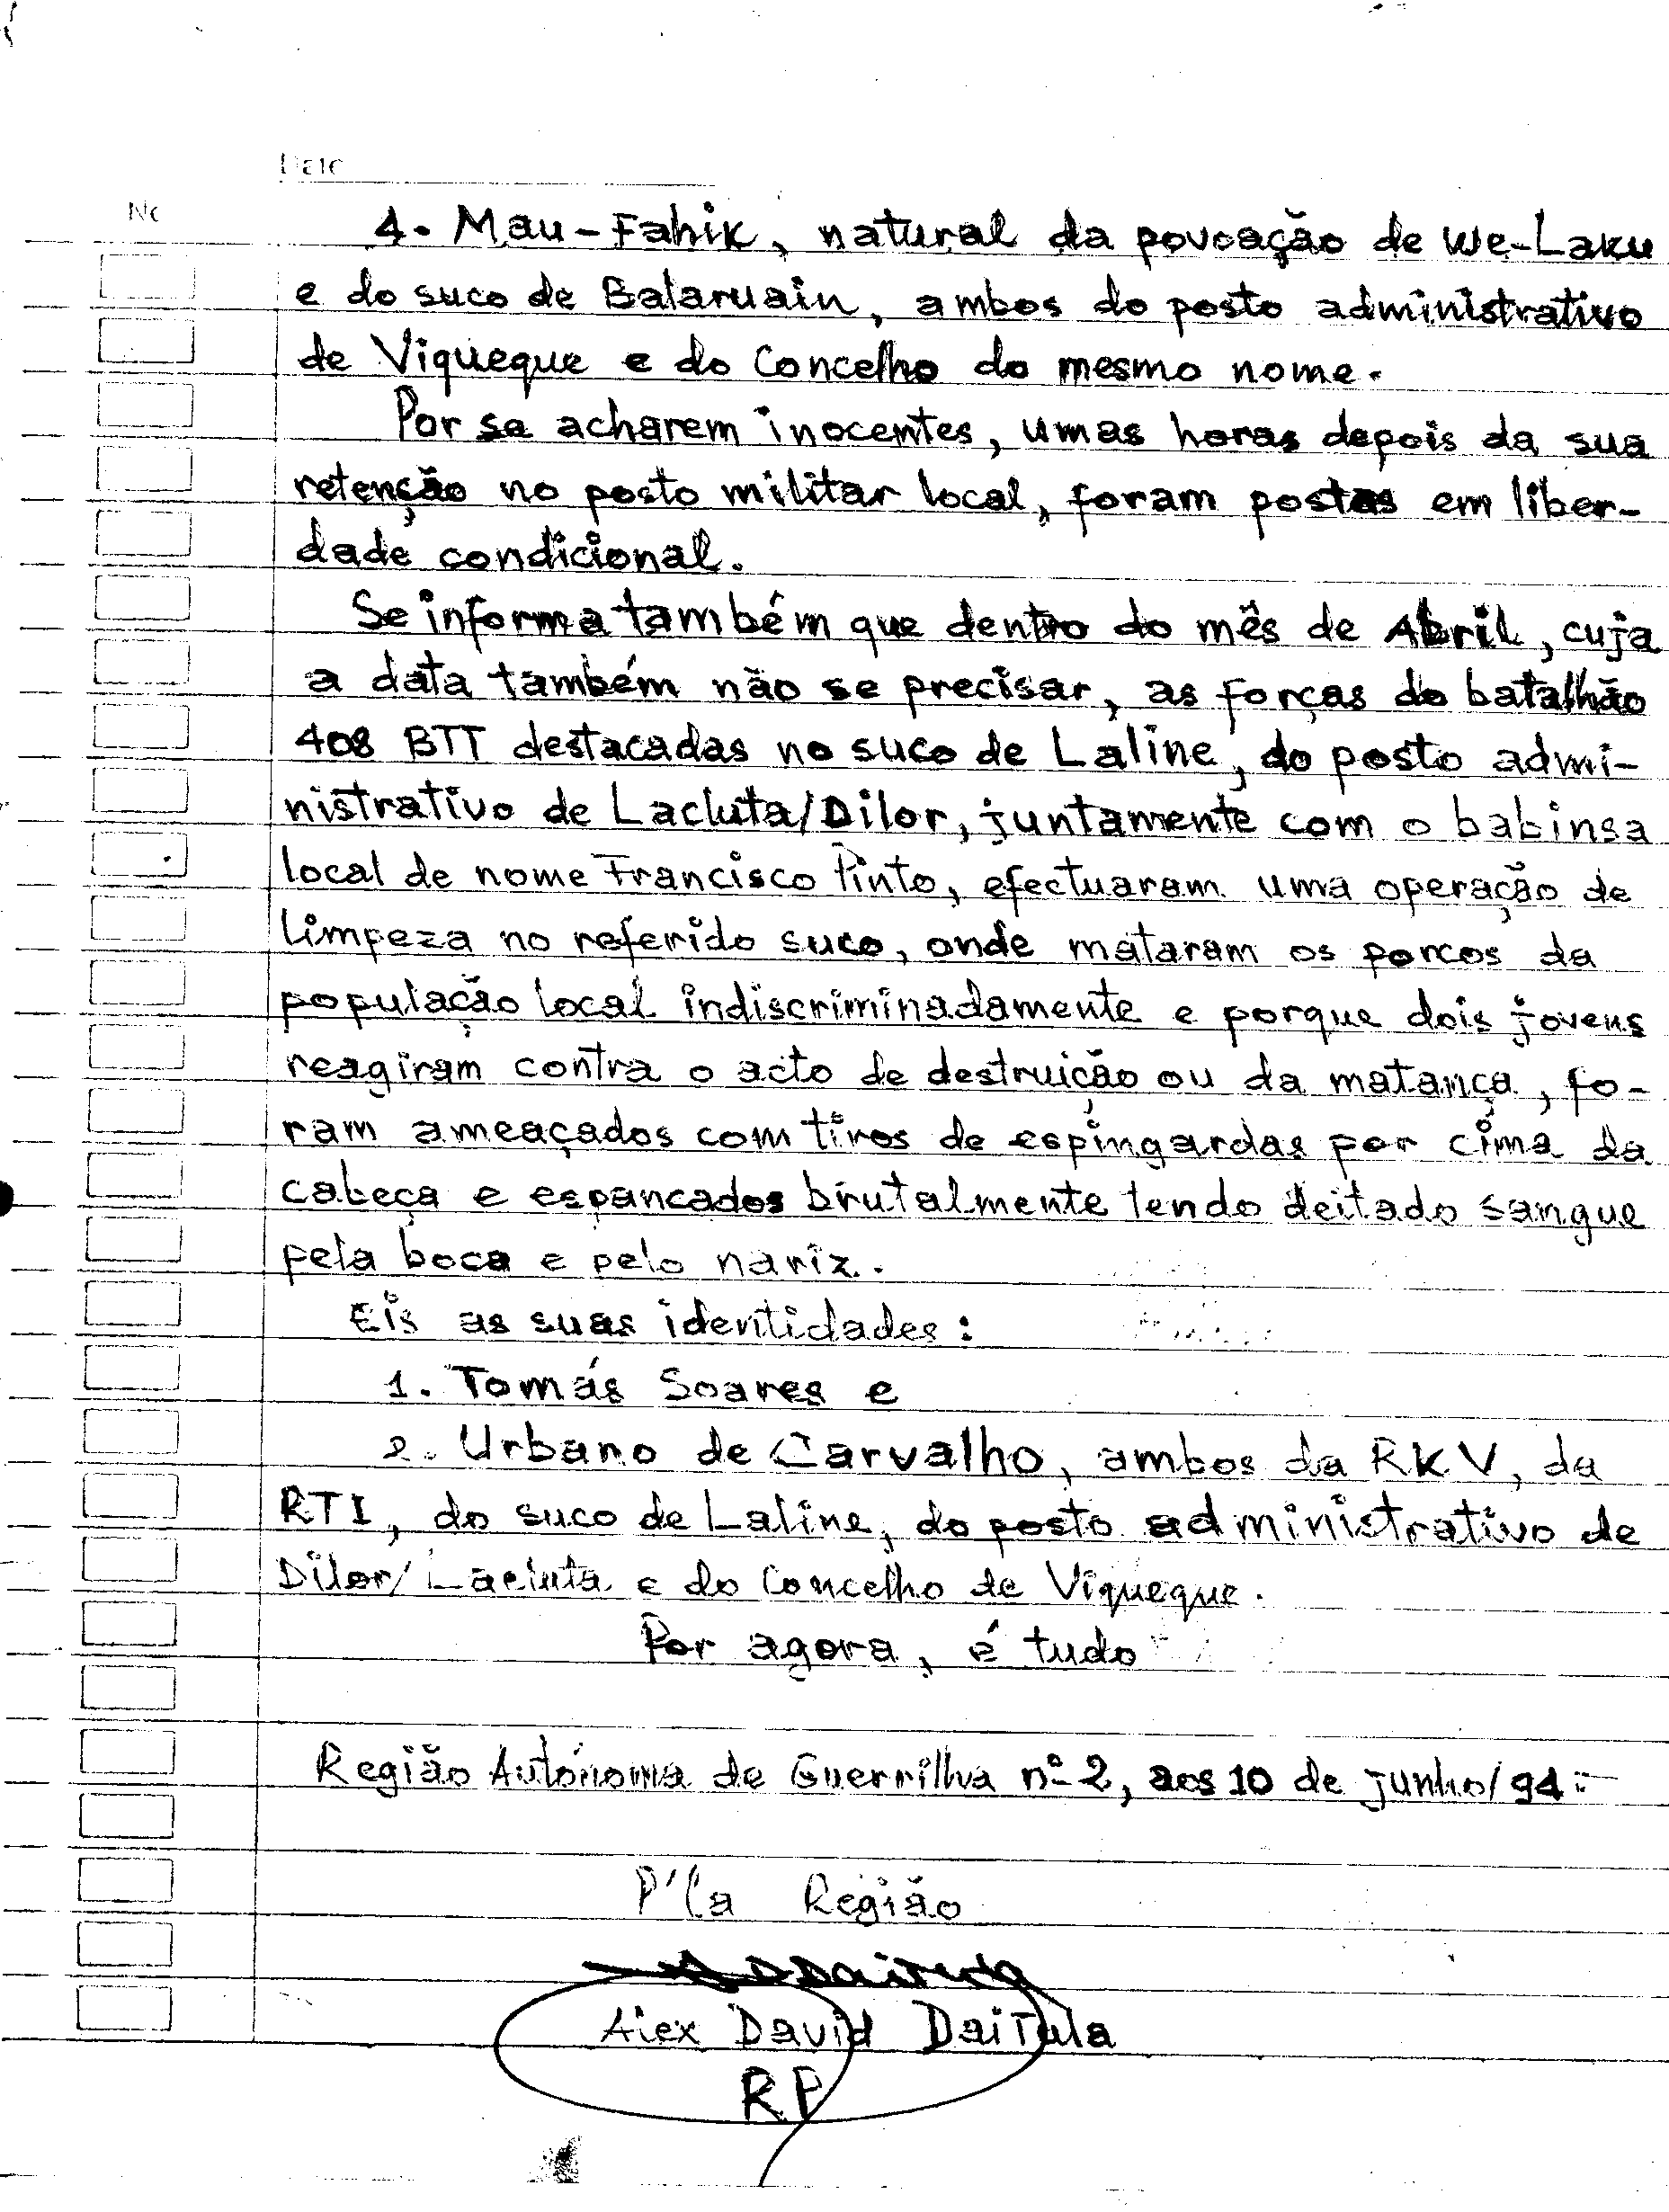 Date
No
4. Mau-Fahik, natural da povoação de We-Laku
e do suco de Balaruain, ambos do posto administrativo
de Viqueque e do Concelho do mesmo nome.
Por se acharem inocentes, umas horas depois da sua
retenção no posto militar local, foram postas em liber-
dade condicional.
Se informa também que dentro do mês de Abril, cuja
a data também não se precisar, as forças do batalhão
408 BTT destacadas no suco de Laline, do posto admi-
nistrativo de Lacluta/Dilor, juntamente com o babinsa
local de nome Francisco Pinto, efectuaram uma operação de
limpeza no referido suco, onde mataram os porcos da
população local indiscriminadamente e porque dois jovens
reagiram contra o acto de destruição ou da matança, fo-
ram ameaçados com tiros de espingardas por cima da
cabeça e espancados brutalmente tendo deitado sangue
pela boca e pelo nariz.
Eis as suas identidades:
1. Tomás Soares e
2. Urbano de Carvalho, ambos da RKV, da
RTI, do suco de Laline, do posto administrativo de
Dilor/Lacluta e do Concelho de Viqueque.
Por agora, é tudo
Região Autónoma de Guerrilha nº 2, aos 10 de junho/94.-
P'la Região
Alex David Daitula
RP